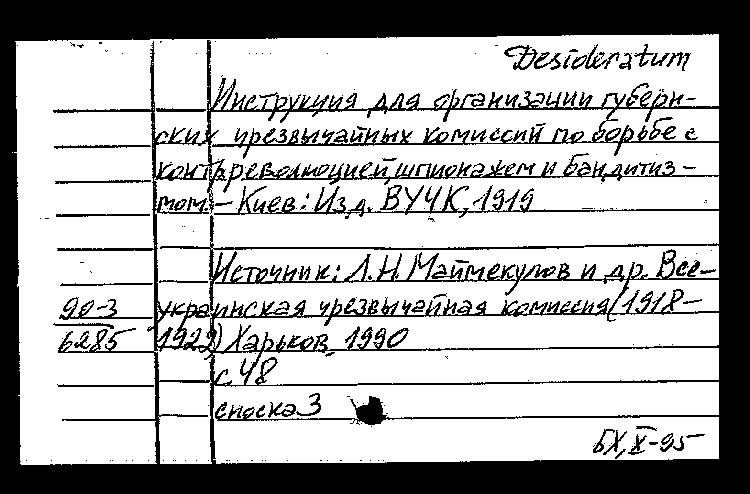 Desideratum
Инструкция для организации губерн-
ских чрезвычайных комиссий по борьбе с
контрреволюцией, шпионажем и бандитиз-
мом. – Киев: Изд. ВУЧК, 1919
Источник: Л.Н. Маймекулов и др. Все-
90-3 украинская чрезвычайная комиссия (1918-
6285 1922) Харьков, 1990
с. 48
сноска 3
БХ, X-95